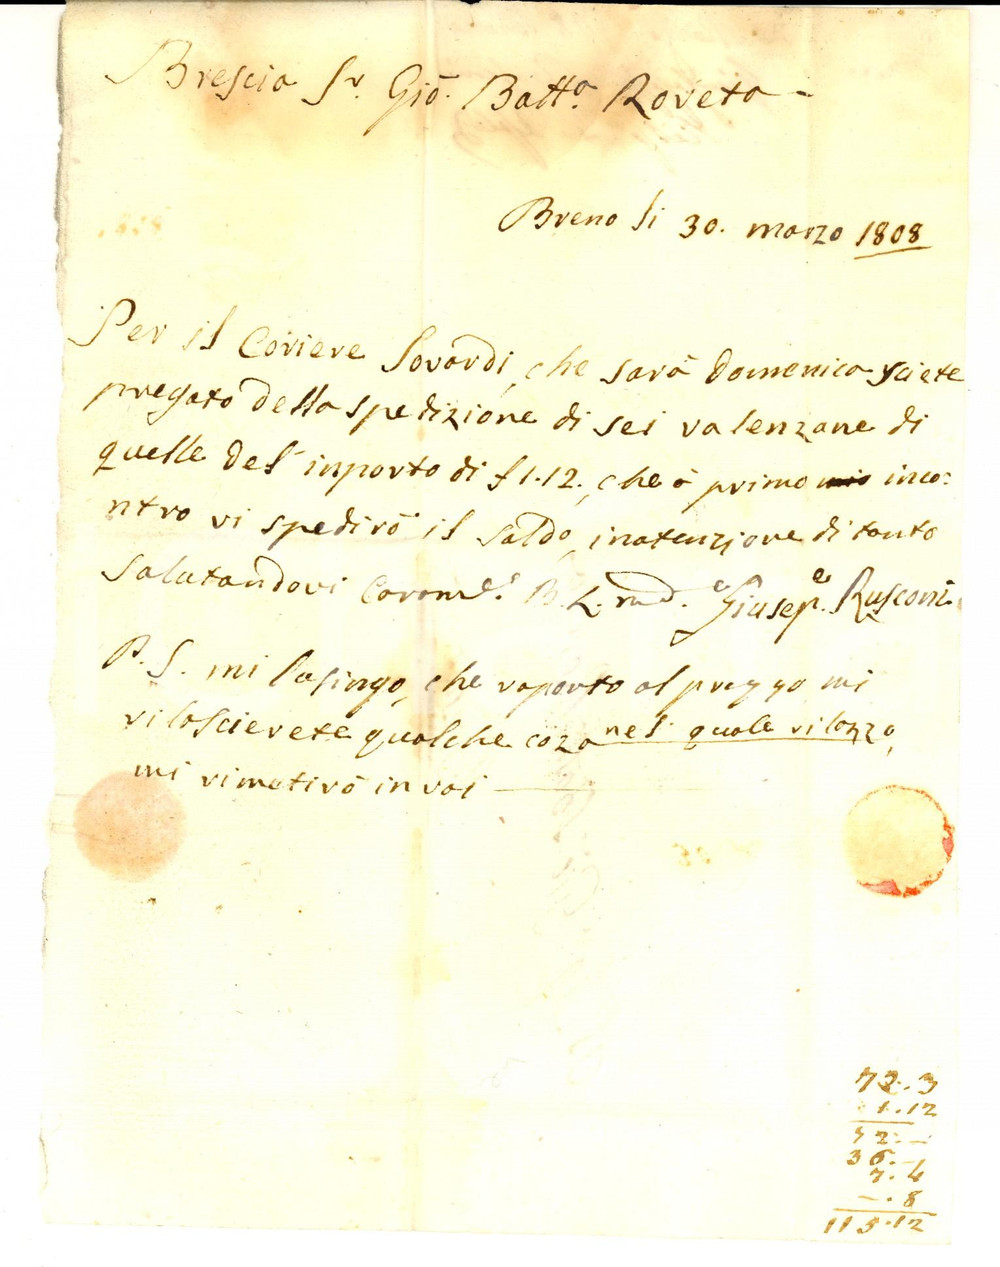 Brescia Sr. Gio. Batta. Roveta
Breno li 30. marzo 1808
Per il Coriere Sovardi, che sarà Domenica siete
pregato della spedizione di sei valenzane di
quelle del inporto di £ 1.12., che à primo mio inco:
ntro vi spedirò il saldo, inatenzione di tanto
Salutandovi Caram.e B. L. md. Giusep.e Rusconi
P.S. mi lusingo, che raporto al prezzo mi
rilascierete qualche coza nel quale rilazzo,
mi rimetirò in voi
72.3
1.12
72.–
36.–
7.4
–.8
115.12